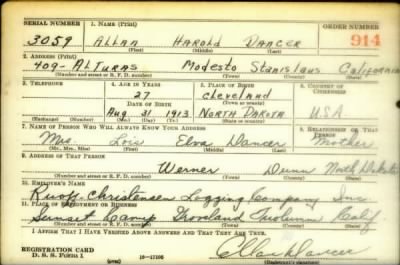 SERIAL NUMBER 1. NAME (Print) ORDER NUMBER
3059 ALLAN HAROLD DANCER 914
(First) (Middle) (Last)
2. ADDRESS (Print)
409- ALTURAS Modesto Stanislaus California
(Number and street or R. F. D. number) (Town) (County) (State)
3. TELEPHONE 4. AGE IN YEARS 5. PLACE OF BIRTH 6. COUNTRY OF CITIZENSHIP
27 Cleveland
DATE OF BIRTH (Town or county)
Aug 31 1913 NORTH DAKOTA U.S.A.
(Exchange) (Number) (Mo.) (Day) (Yr.) (State or country)
7. NAME OF PERSON WHO WILL ALWAYS KNOW YOUR ADDRESS 8. RELATIONSHIP OF THAT PERSON
Mrs Lois Elva Dancer Mother
(Mr., Mrs., Miss) (First) (Middle) (Last)
9. ADDRESS OF THAT PERSON
Werner Dunn North Dakota
(Number and street or R. F. D. number) (Town) (County) (State)
10. EMPLOYER'S NAME
Ruoff-Christensen Logging Company Inc.
11. PLACE OF EMPLOYMENT OR BUSINESS
Camp Groveland Tuolumne Calif.
(Number and street or R. F. D. number) (Town) (County) (State)
I AFFIRM THAT I HAVE VERIFIED ABOVE ANSWERS AND THAT THEY ARE TRUE.
REGISTRATION CARD
D. S. S. FORM 1 (over) 16-17105 Allan Dancer
(Registrant's signature)